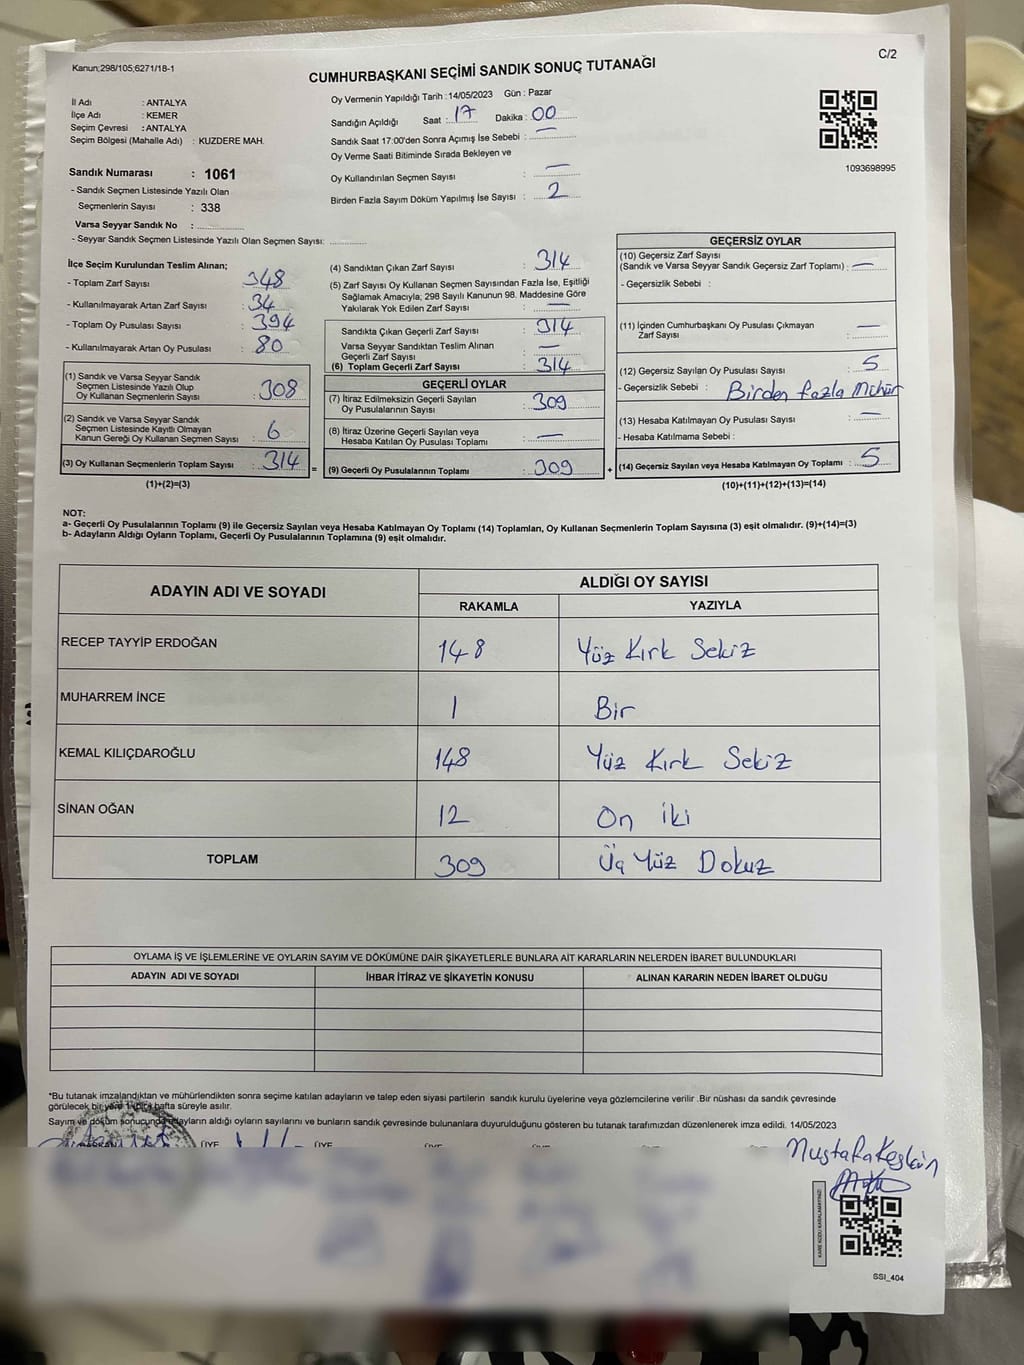 Kanun;298/105;6271/18-1
C/2
CUMHURBAŞKANI SEÇİMİ SANDIK SONUÇ TUTANAĞI
İl Adı : ANTALYA
İlçe Adı : KEMER
Seçim Çevresi : ANTALYA
Seçim Bölgesi (Mahalle Adı) : KUZDERE MAH.
Sandık Numarası : 1061
- Sandık Seçmen Listesinde Yazılı Olan
Seçmenlerin Sayısı : 338
Varsa Seyyar Sandık No :
- Seyyar Sandık Seçmen Listesinde Yazılı Olan Seçmen Sayısı:
Oy Vermenin Yapıldığı Tarih :14/05/2023 Gün : Pazar
Sandığın Açıldığı Saat : 17 Dakika : 00
Sandık Saat 17:00'den Sonra Açımış İse Sebebi : —
Oy Verme Saati Bitiminde Sırada Bekleyen ve
Oy Kullandırılan Seçmen Sayısı : —
Birden Fazla Sayım Döküm Yapılmış İse Sayısı : 2
1093698995
İlçe Seçim Kurulundan Teslim Alınan;
- Toplam Zarf Sayısı : 348
- Kullanılmayarak Artan Zarf Sayısı : 34
- Toplam Oy Pusulası Sayısı : 394
- Kullanılmayarak Artan Oy Pusulası : 80
(1) Sandık ve Varsa Seyyar Sandık
Seçmen Listesinde Yazılı Olup
Oy Kullanan Seçmenlerin Sayısı : 308
(2) Sandık ve Varsa Seyyar Sandık
Seçmen Listesinde Kayıtlı Olmayan
Kanun Gereği Oy Kullanan Seçmen Sayısı : 6
(3) Oy Kullanan Seçmenlerin Toplam Sayısı : 314
(1)+(2)=(3)
(4) Sandıktan Çıkan Zarf Sayısı : 314
(5) Zarf Sayısı Oy Kullanan Seçmen Sayısından Fazla İse, Eşitliği
Sağlamak Amacıyla; 298 Sayılı Kanunun 98. Maddesine Göre
Yakılarak Yok Edilen Zarf Sayısı : —
Sandıkta Çıkan Geçerli Zarf Sayısı : 314
Varsa Seyyar Sandıktan Teslim Alınan
Geçerli Zarf Sayısı : —
(6) Toplam Geçerli Zarf Sayısı : 314
GEÇERLİ OYLAR
(7) İtiraz Edilmeksizin Geçerli Sayılan
Oy Pusulalarının Sayısı : 309
(8) İtiraz Üzerine Geçerli Sayılan veya
Hesaba Katılan Oy Pusulası Toplamı : —
= (9) Geçerli Oy Pusulalarının Toplamı : 309 +
GEÇERSİZ OYLAR
(10) Geçersiz Zarf Sayısı
(Sandık ve Varsa Seyyar Sandık Geçersiz Zarf Toplamı) : —
- Geçersizlik Sebebi :
(11) İçinden Cumhurbaşkanı Oy Pusulası Çıkmayan
Zarf Sayısı : —
(12) Geçersiz Sayılan Oy Pusulası Sayısı : 5
- Geçersizlik Sebebi : Birden fazla Mühür
(13) Hesaba Katılmayan Oy Pusulası Sayısı : —
- Hesaba Katılmama Sebebi :
(14) Geçersiz Sayılan veya Hesaba Katılmayan Oy Toplamı : 5
(10)+(11)+(12)+(13)=(14)
NOT:
a- Geçerli Oy Pusulalarının Toplamı (9) ile Geçersiz Sayılan veya Hesaba Katılmayan Oy Toplamı (14) Toplamları, Oy Kullanan Seçmenlerin Toplam Sayısına (3) eşit olmalıdır. (9)+(14)=(3)
b- Adayların Aldığı Oyların Toplamı, Geçerli Oy Pusulalarının Toplamına (9) eşit olmalıdır.
ADAYIN ADI VE SOYADI ALDIĞI OY SAYISI
RAKAMLA YAZIYLA
RECEP TAYYİP ERDOĞAN 148 Yüz Kırk Sekiz
MUHARREM İNCE 1 Bir
KEMAL KILIÇDAROĞLU 148 Yüz Kırk Sekiz
SİNAN OĞAN 12 On iki
TOPLAM 309 Üç Yüz Dokuz
OYLAMA İŞ VE İŞLEMLERİNE VE OYLARIN SAYIM VE DÖKÜMÜNE DAİR ŞİKAYETLERLE BUNLARA AİT KARARLARIN NELERDEN İBARET BULUNDUKLARI
ADAYIN ADI VE SOYADI İHBAR İTİRAZ VE ŞİKAYETİN KONUSU ALINAN KARARIN NEDEN İBARET OLDUĞU
*Bu tutanak imzalandıktan ve mühürlendikten sonra seçime katılan adayların ve talep eden siyasi partilerin sandık kurulu üyelerine veya gözlemcilerine verilir .Bir nüshası da sandık çevresinde
görülecek bir yere 1 bir hafta süreyle asılır.
Sayım ve döküm sonucunda adayların aldığı oyların sayılarını ve bunların sandık çevresinde bulunanlara duyurulduğunu gösteren bu tutanak tarafımızdan düzenlenerek imza edildi. 14/05/2023
ÜYE ÜYE
Mustafa Keskin
KARE KODU KARALAMAYINIZ!
SSI_404